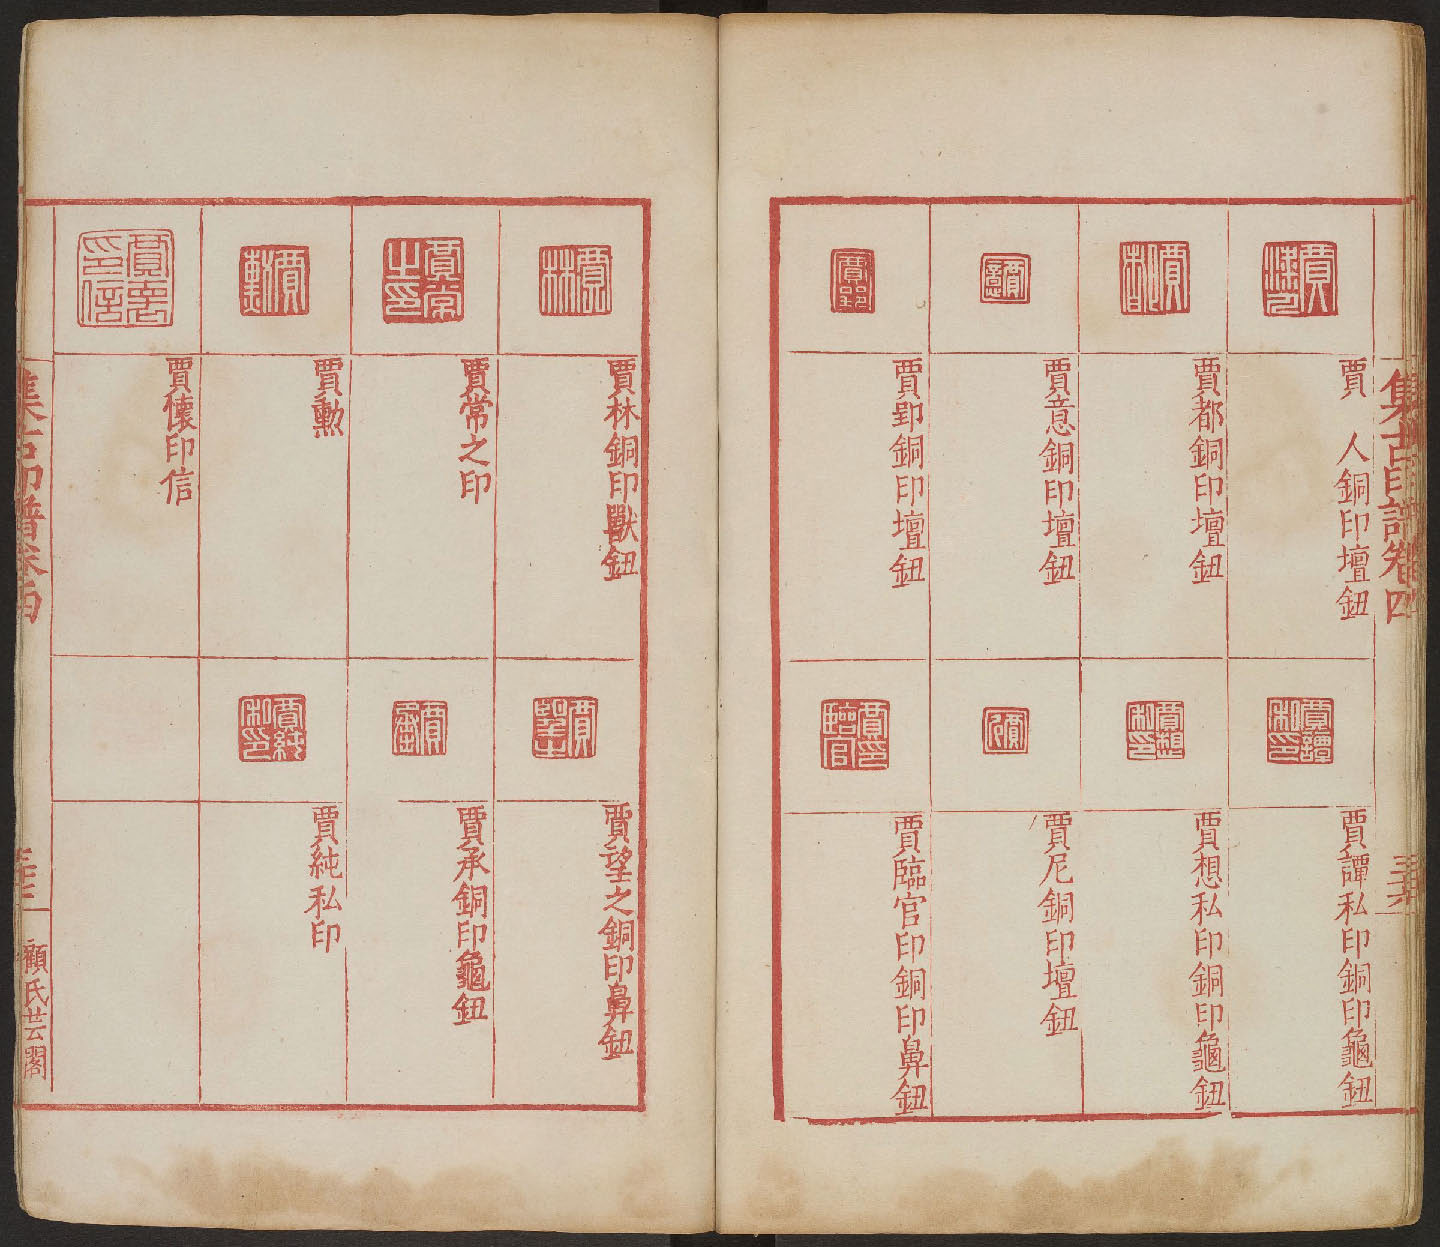 集古印譜卷四
賈 人銅印壇鈕
賈都銅印壇鈕
賈意銅印壇鈕
賈郢銅印壇鈕
賈譚私印銅印龜鈕
賈想私印銅印龜鈕
賈尼銅印壇鈕
賈臨官印銅印鼻鈕
賈林銅印獸鈕
賈常之印
賈勲
賈懷印信
賈望之銅印鼻鈕
賈承銅印龜鈕
賈純私印
集古印譜卷四
顧氏芸閣